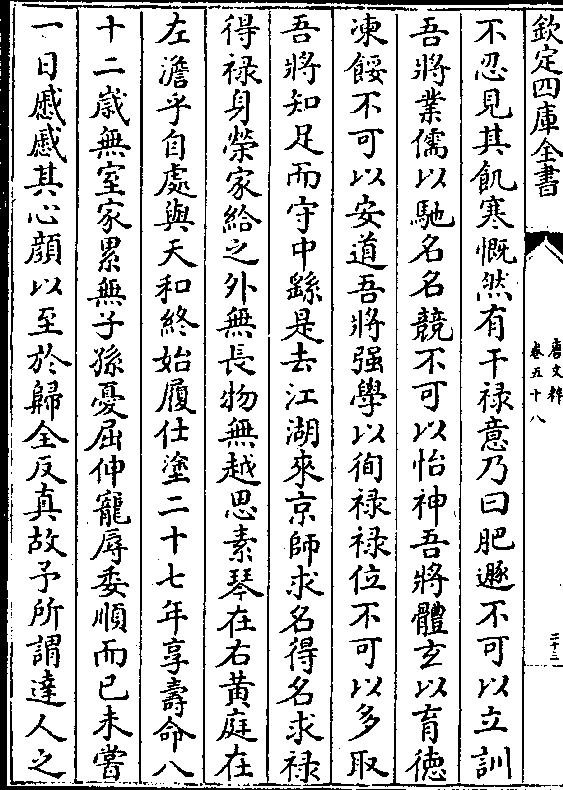 欽定四庫全書
唐文粹
卷五十八
二十三
不忍見其飢寒慨然有干禄意乃曰肥遯不可以立訓
吾將業儒以馳名名競不可以怡神吾將體玄以育徳
凍餒不可以安道吾將强學以徇禄禄位不可以多取
吾將知足而守中繇是去江湖來京師求名得名求禄
得禄身榮家給之外無長物無越思素琴在右黄庭在
左澹乎自處與天和終始履仕塗二十七年享壽命八
十二嵗無室家累無子孫憂屈伸寵辱委順而已未嘗
一日慼慼其心顔以至於歸全反真故予所謂達人之